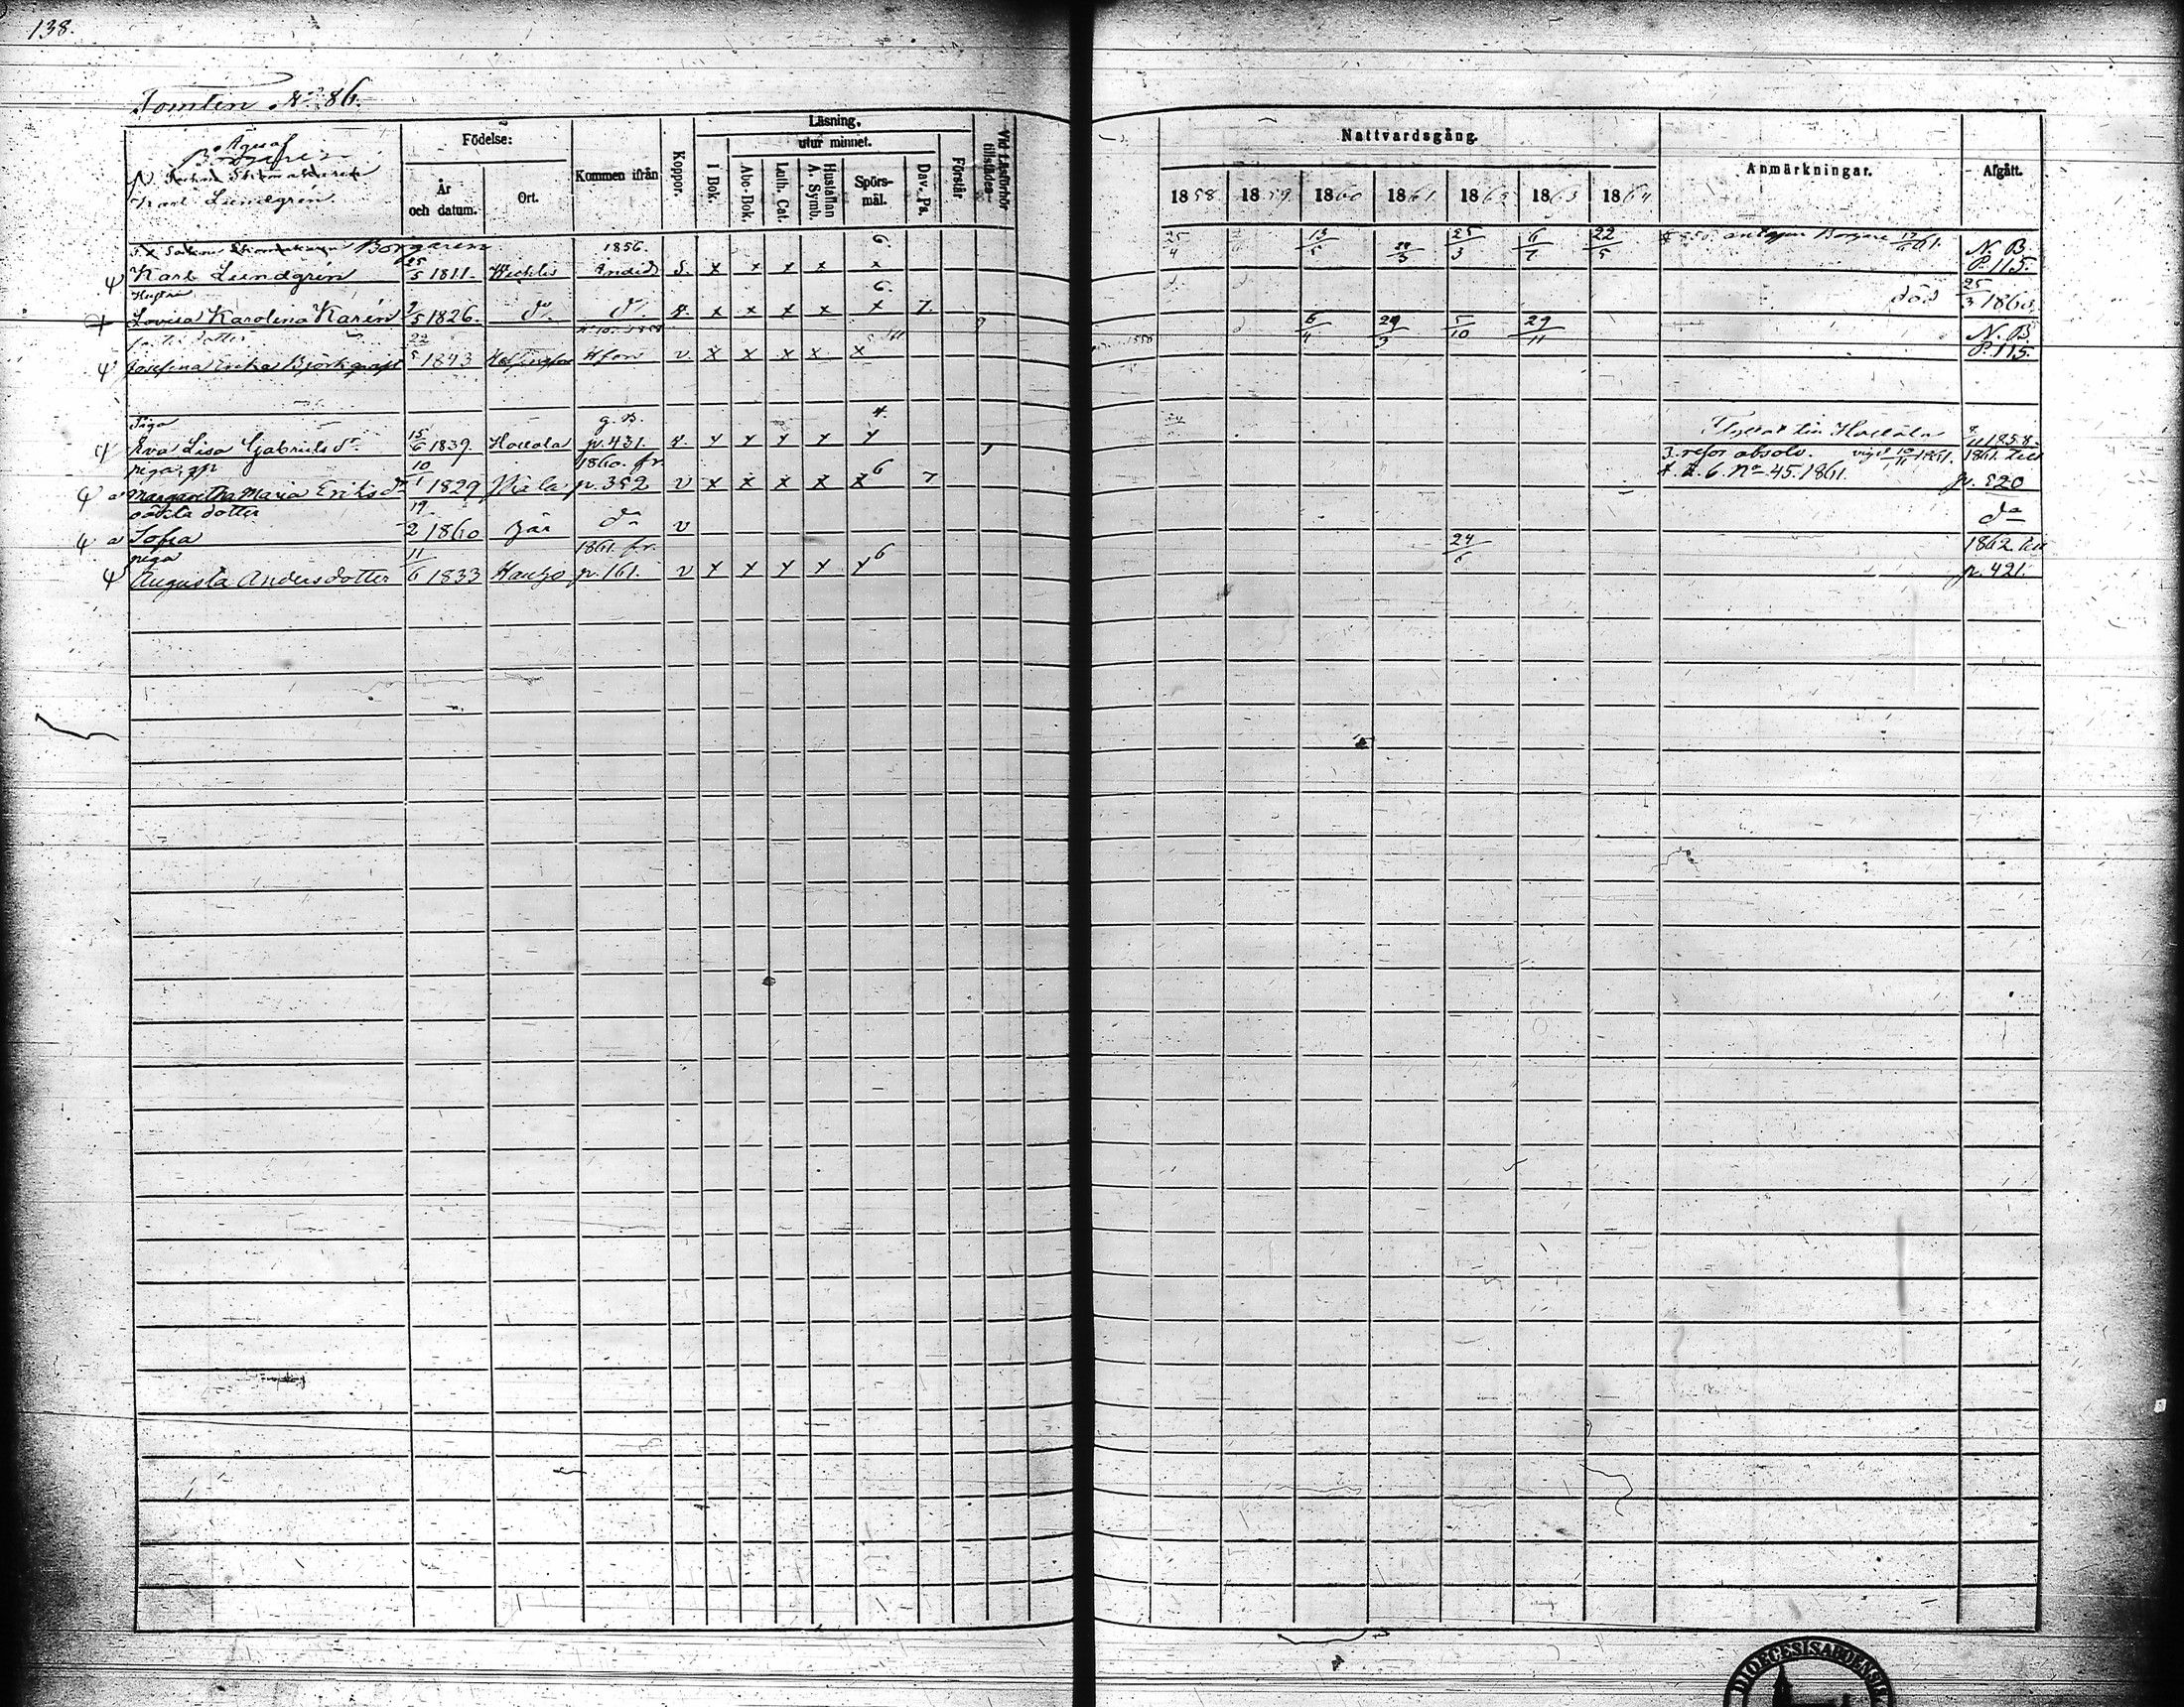 138.
Tomten No 86.
Äges af
Borgaren
Karl Lundgrén
Födelse:
År och datum.
Ort.
Kommen ifrån
Koppor.
Läsning.
I Bok.
utur minnet.
Abc-Bok.
Luth. Cat.
Hustaflan A. Symb.
Spörsmål.
Dav. Ps.
Förstår
Vid Läsförhör tillstädes
Nattvardsgång.
1858 1859 1860 1861 1862 1863 1864
Anmärkningar.
Afgått.
Borgaren 1856. 6. 25/4 13/5 25/3 6/7 22/5 antagen Borgare 17/6 61. N. B.
Karl Lundgrén 25/5 1811. S. x x x x x P. 115.
Hustru 6. död 25/3 1860.
Lovisa Karolina Karén 2/5 1826. do. do. x x x x x 7.
dotter 22/5 6/4 29/3 5/10 29/11 N. B.
Josefina Erika Björkqvist 1843 Helsingfors Hfors v x x x x x P. 115.
Piga g. B. 4.
Eva Lisa Gabrielsdr 15/6 1839. Hollola p. 431. y y y y y Flyttat till Hollola 8/11 1858.
piga 10/1 1860. fr. 6 3. resor absolv. vigd 10/11 1861. 1861. till
Margaretha Maria Eriksdr 1829 p. 352 v x x x x x 7 No 45. 1861. p. 520
oäkta dotter 19/2
Sofia 1860 här do v do
piga 11/6 1861. fr. 6 24/6 1862. till
Augusta Andersdotter 1833 Hauho p. 161. v y y y y y p. 421.
DIOECESIS ABOENSIS